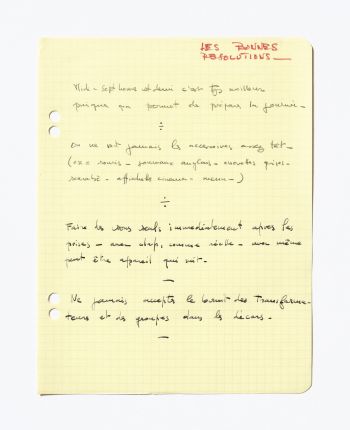 LES BONNES
RESOLUTIONS _
Midi - sept heures et demi c'est bien meilleur
puisque ça permet de préparer la journée -
÷
On ne voit jamais les accessoires assez tôt -
(ex = souris - journaux anglais -
÷
Faire les sons seuls immédiatement après les
prises - avec clap, comme réelle - avec même
peut être appareil qui suit -
—
Ne jamais accepter le bruit des transforma-
teurs et des groupes dans les décors -
—